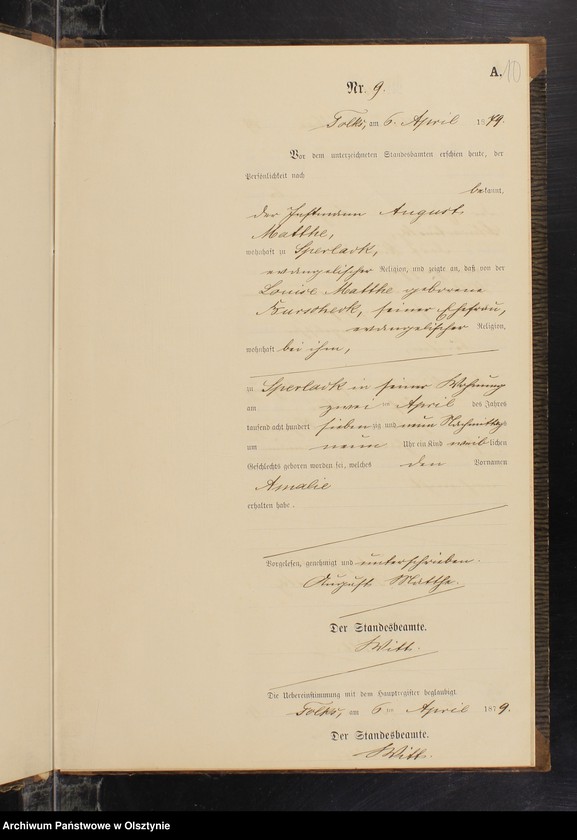 A. 10
Nr. 9.
Tolks, am 6. April 1879.
Vor dem unterzeichneten Standesbeamten erschien heute, der
Persönlichkeit nach
bekannt,
der Instmann August
Matthe,
wohnhaft zu Sperlack,
evangelischer Religion, und zeigte an, daß von der
Louise Matthe geborene
Kurscheck, seiner Ehefrau,
evangelischer Religion,
wohnhaft bei ihm,
zu Sperlack in seiner Wohnung
am zwei ten April des Jahres
tausend acht hundert siebenzig und neun Nachmittags
um neun Uhr ein Kind weiblichen
Geschlechts geboren worden sei, welches den Vornamen
Amalie
erhalten habe.
Vorgelesen, genehmigt und unterschrieben.
August Matthe.
Der Standesbeamte.
Witt.
Die Uebereinstimmung mit dem Hauptregister beglaubigt
Tolks, am 6 ten April 1879.
Der Standesbeamte.
Witt.
Archiwum Państwowe w Olsztynie